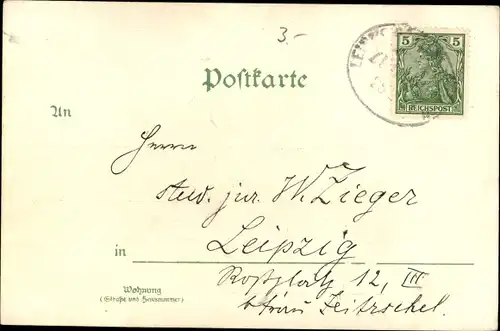 3.-
LEIPZIG
5 5
REICHSPOST
Postkarte
An
Herrn
stud. jur. W. Zieger
in Leipzig
Roßplatz 12, III
Wohnung
(Straße und Hausnummer)
b/ Frau Zeitzschel.